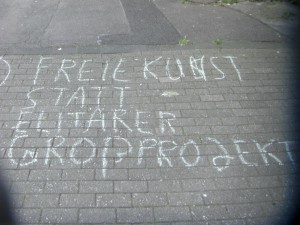 ) FREIE KUNST
STATT
ELITÄRER
GROPPROJEKT